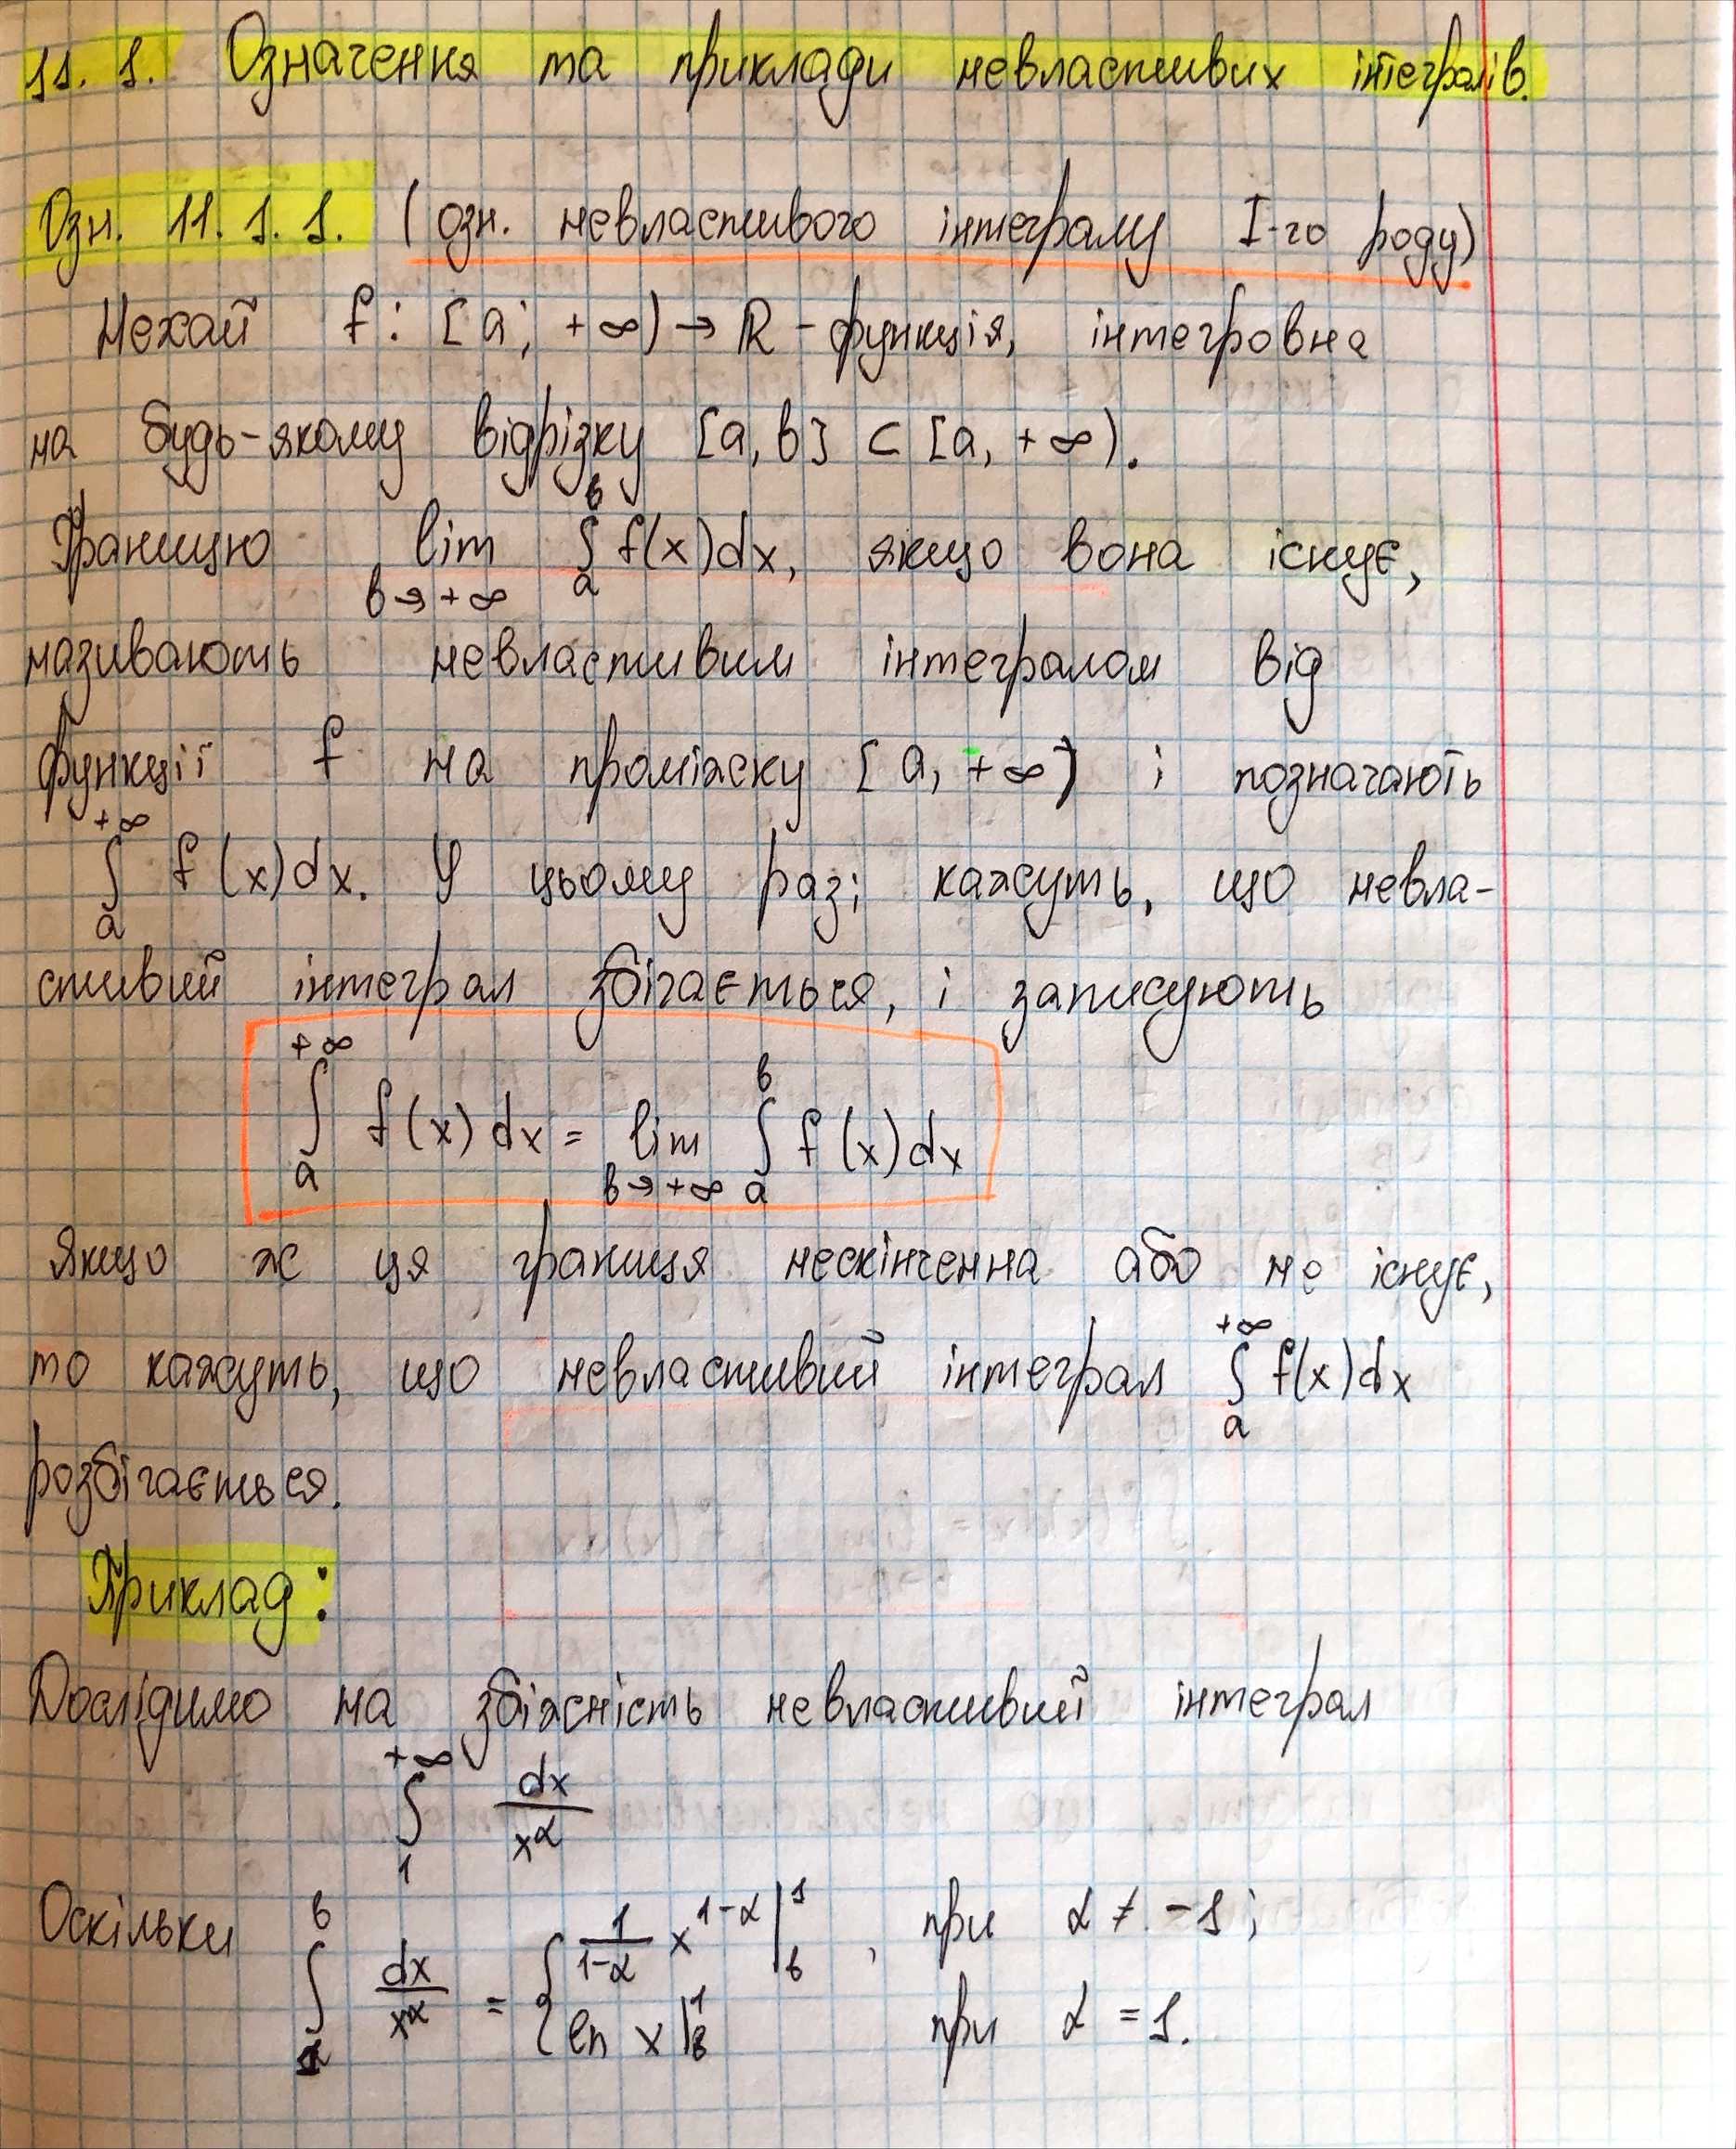 11. 1. Означення та приклади невластивих інтегралів.
Озн. 11. 1. 1. (озн. невластивого інтегралу I-го роду)
Нехай f: [a; +∞) → ℝ - функція, інтегровна
на будь-якому відрізку [a, b] ⊂ [a, +∞).
Границю lim_{b→+∞} ∫_a^b f(x)dx, якщо вона існує,
називають невластивим інтегралом від
функції f на проміжку [a, +∞) і позначають
∫_a^{+∞} f(x)dx. У цьому разі кажуть, що невла-
стивий інтеграл збігається, і записують
∫_a^{+∞} f(x)dx = lim_{b→+∞} ∫_a^b f(x)dx
Якщо ж ця границя нескінченна або не існує,
то кажуть, що невластивий інтеграл ∫_a^{+∞} f(x)dx
розбігається.
Приклад:
Дослідимо на збіжність невластивий інтеграл
∫_1^{+∞} dx/x^α
Оскільки ∫_1^b dx/x^α = { 1/(1-α) x^{1-α} |_b^1 , при α ≠ -1;
ln x |_b^1 при α = 1.